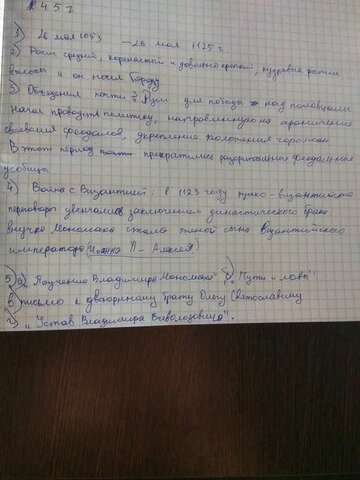 145 г
1) 26 мая 1053 — 26 мая 1125 г.
2) Росн средний, коренастый и довольно крепкий, кудрявые рыжие
волосы и он носил бороду
3) Объединил почти всю Русь для победы над половцами
Начал проводить политику, направленную на ограничение
своеволия феодалов, укрепление положения горожан
В этот период прекратились разорительные феодальные
усобицы
4) Война с Византией: в 1123 году русско-византийские
переговоры увенчались заключением династического брака
внучка Мономаха стала женой сына византийского
императора Иоанна II - Алексея)
5) а) "Поучение Владимира Мономаха" б) "Пути и ловы"
в) письмо к двоюродному брату Олегу Святославичу
г) "Устав Владимира Всеволодовича".